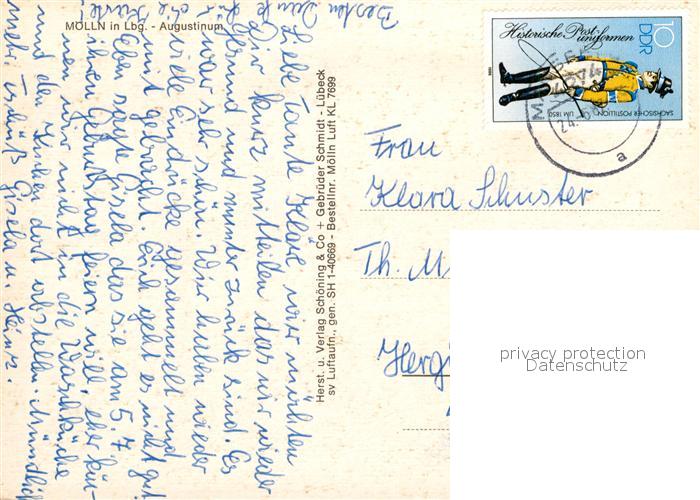 MÖLLN in Lbg. - Augustinum
Besten Dank für die Karte!
Liebe Tante Kläre wir möchten
Dir kurz mitteilen das wir wieder
gesund und munter zurück sind. Es
war sehr schön. Wir haben wieder
viele Eindrücke gesammelt und
mit gebracht. Erich geht es nicht gut
Eben sagte Gisela das sie am 5.7
ihren Geburtstag feiern will, eher kön-
nen wir nicht in die Waschküche
und den Kuchen dort abstellen. Mündlich
mehr Tschüß Gisela u. Heinz.
Herst. u. Verlag Schöning & Co + Gebrüder Schmidt - Lübeck
sv Luftaufn., gen. SH 1-40669 - Bestellnr. Mölln Luft KL 7699
Historische Post-
uniformen
10
DDR
SÄCHSISCHER POSTILLION
UM 1850
1986
24.
a
Frau
Klara Schuster
Th. M
Hergi
privacy protection
Datenschutz